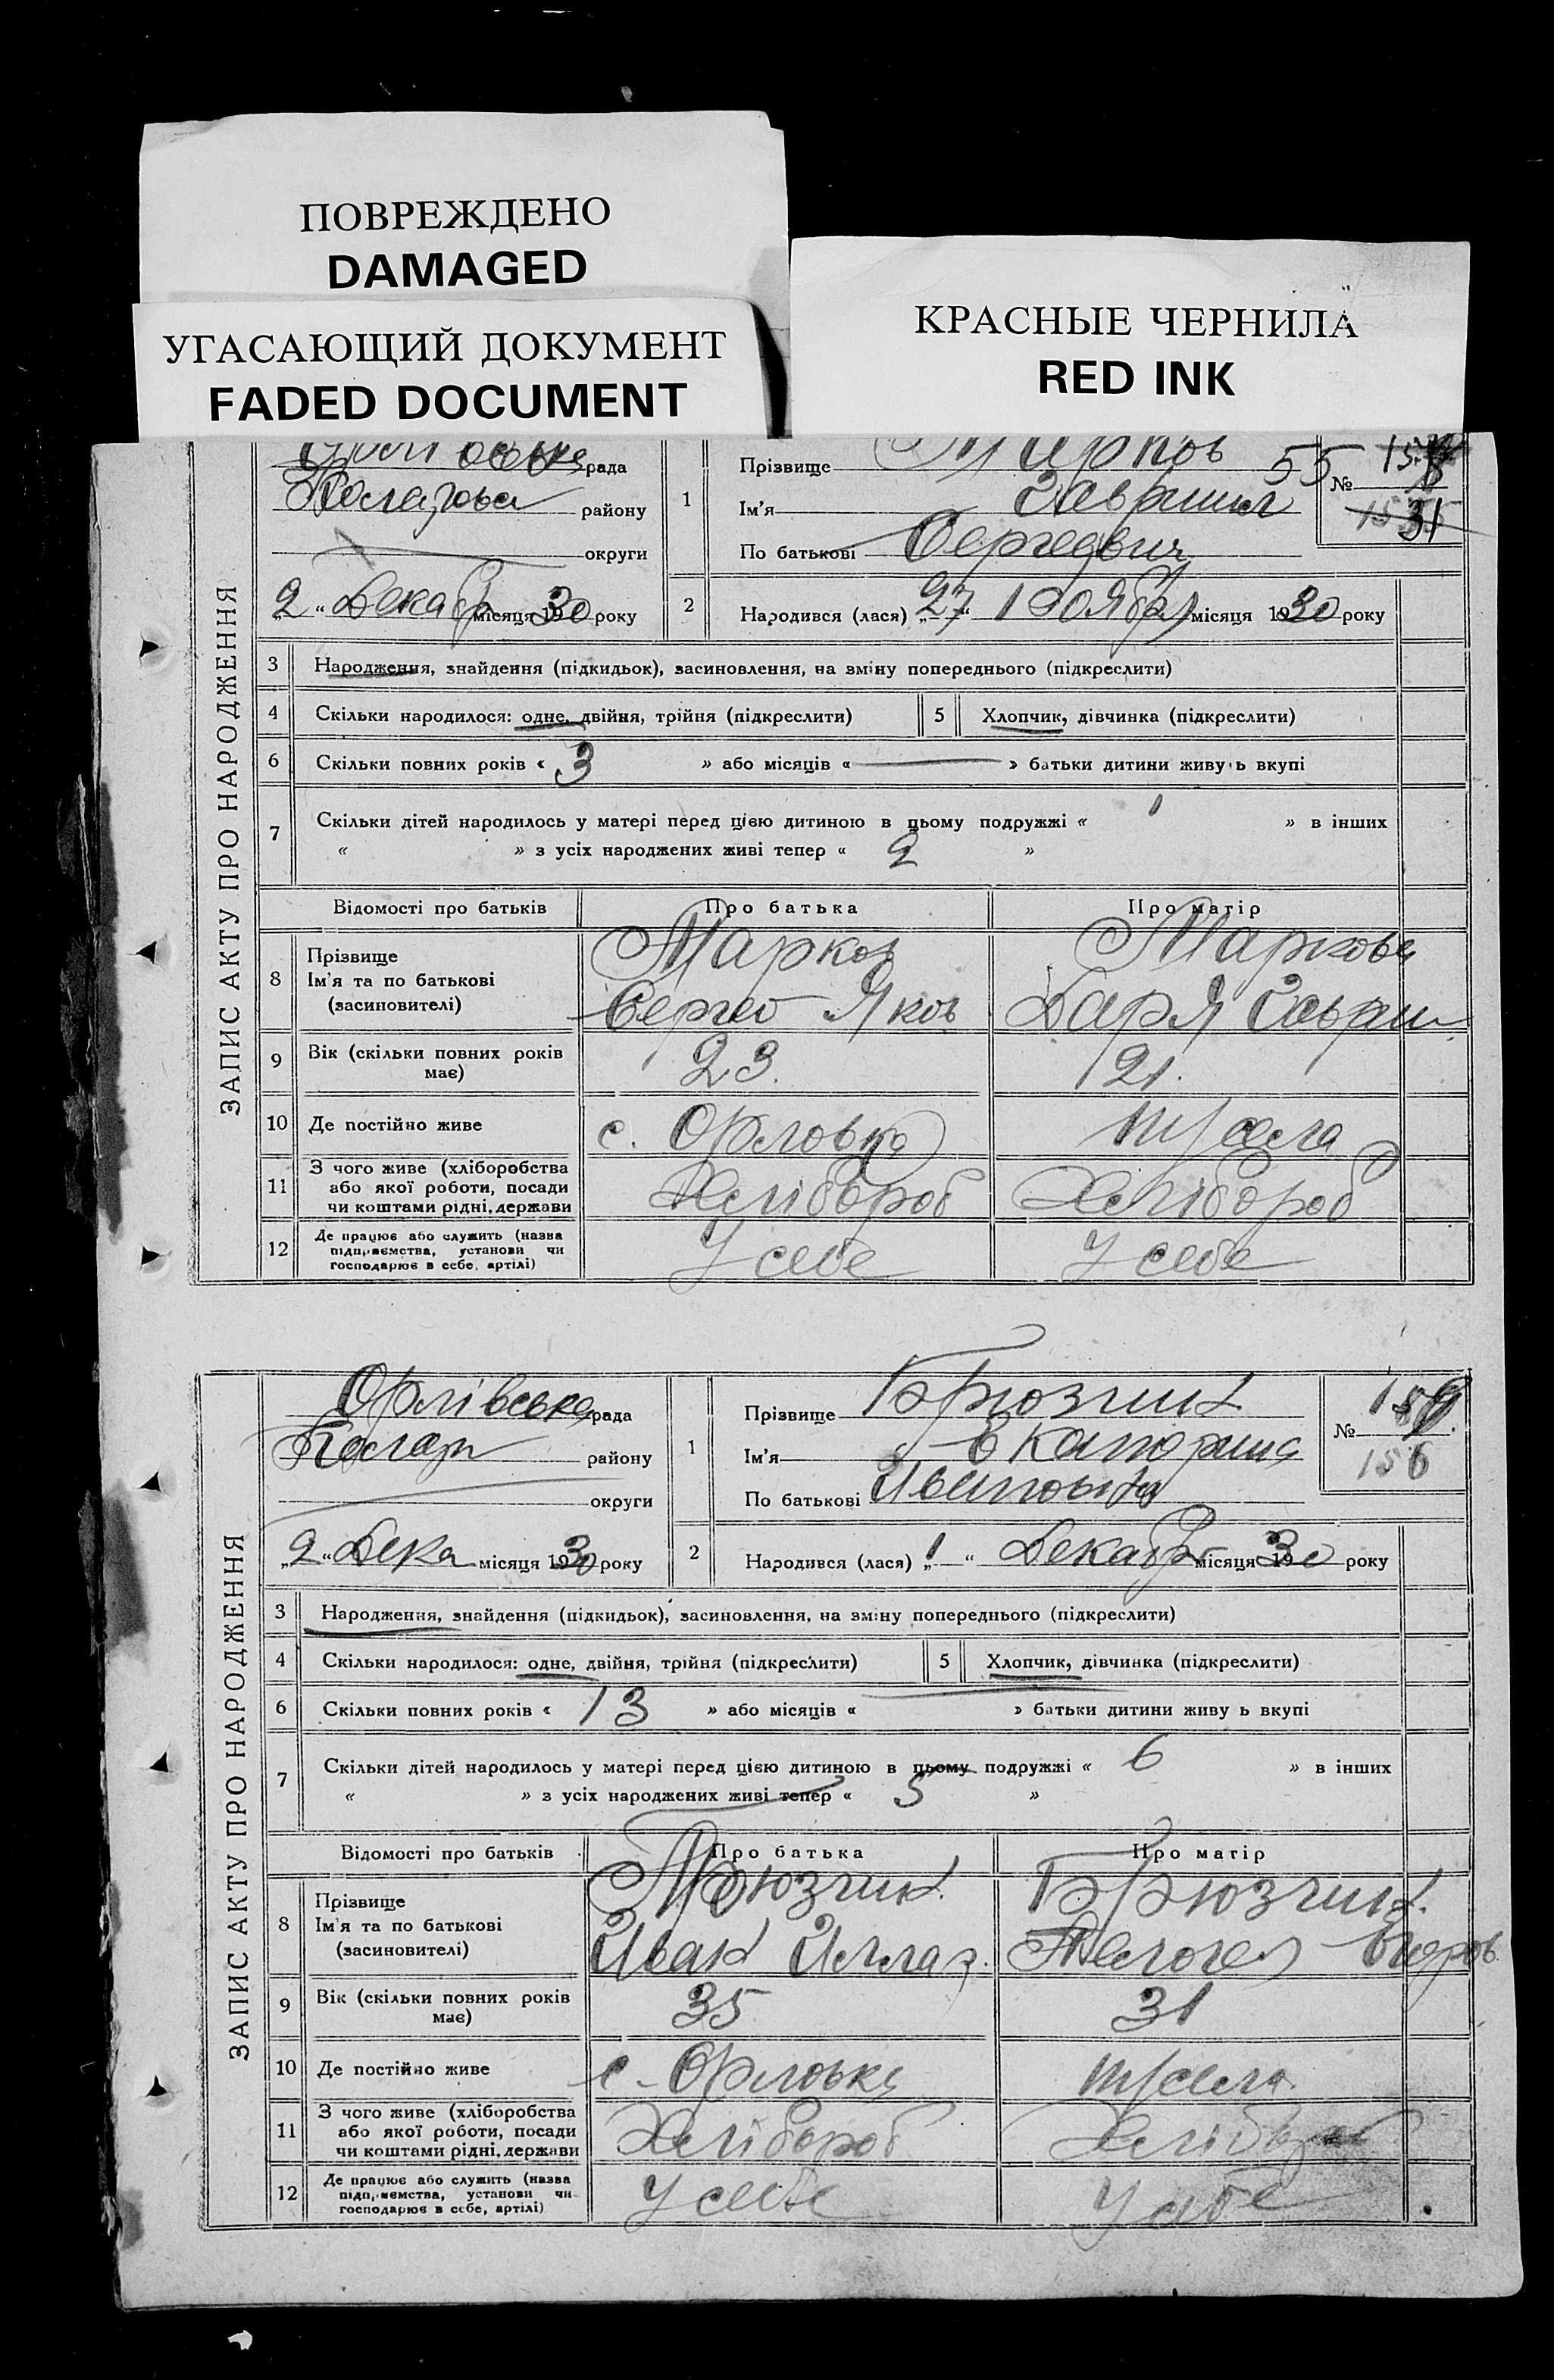 ПОВРЕЖДЕНО
DAMAGED
УГАСАЮЩИЙ ДОКУМЕНТ
FADED DOCUMENT
КРАСНЫЕ ЧЕРНИЛА
RED INK
ЗАПИС АКТУ ПРО НАРОДЖЕННЯ
рада
району
округи
„2“ Декабр місяця 1930 року
1
Прізвище Марков
Ім'я Гаврил
По батькові Сергеевич
55
№
31
2 Народився (лася) „27“ Ноября місяця 1930 року
3 Народження, знайдення (підкидьок), засиновлення, на зміну попереднього (підкреслити)
4 Скільки народилося: одне, двійня, трійня (підкреслити)
5 Хлопчик, дівчинка (підкреслити)
6 Скільки повних років « 3 » або місяців « — » батьки дитини живуть вкупі
7 Скільки дітей народилось у матері перед цією дитиною в цьому подружжі « 1 » в інших
« » з усіх народжених живі тепер « 2 »
Відомості про батьків Про батька Про матір
8 Прізвище Марков Маркова
Ім'я та по батькові
(засиновителі) Сергео Яков Даря Гаврил
9 Вік (скільки повних років має) 23. 21.
10 Де постійно живе с. Орловка т/села
11 З чого живе (хліборобства
або якої роботи, посади
чи коштами рідні, держави Хлібороб Хлібороб
12 Де працює або служить (назва
підприємства, установи чи
господарює в себе, артілі) У себе У себе
ЗАПИС АКТУ ПРО НАРОДЖЕННЯ
Орлівська рада
району
округи
„2“ Дека місяця 1930 року
1
Прізвище Брюзгин
Ім'я
По батькові
№ 159.
156
2 Народився (лася) „1“ Декабр місяця 1930 року
3 Народження, знайдення (підкидьок), засиновлення, на зміну попереднього (підкреслити)
4 Скільки народилося: одне, двійня, трійня (підкреслити)
5 Хлопчик, дівчинка (підкреслити)
6 Скільки повних років « 13 » або місяців « — » батьки дитини живуть вкупі
7 Скільки дітей народилось у матері перед цією дитиною в цьому подружжі « 6 » в інших
« » з усіх народжених живі тепер « 5 »
Відомості про батьків Про батька Про матір
8 Прізвище Брюзгин.
Ім'я та по батькові
(засиновителі) Иван
9 Вік (скільки повних років має) 35 31
10 Де постійно живе с. Орловка т/села.
11 З чого живе (хліборобства
або якої роботи, посади
чи коштами рідні, держави Хлібороб Хлібороб
12 Де працює або служить (назва
підприємства, установи чи
господарює в себе, артілі) У себе У себе